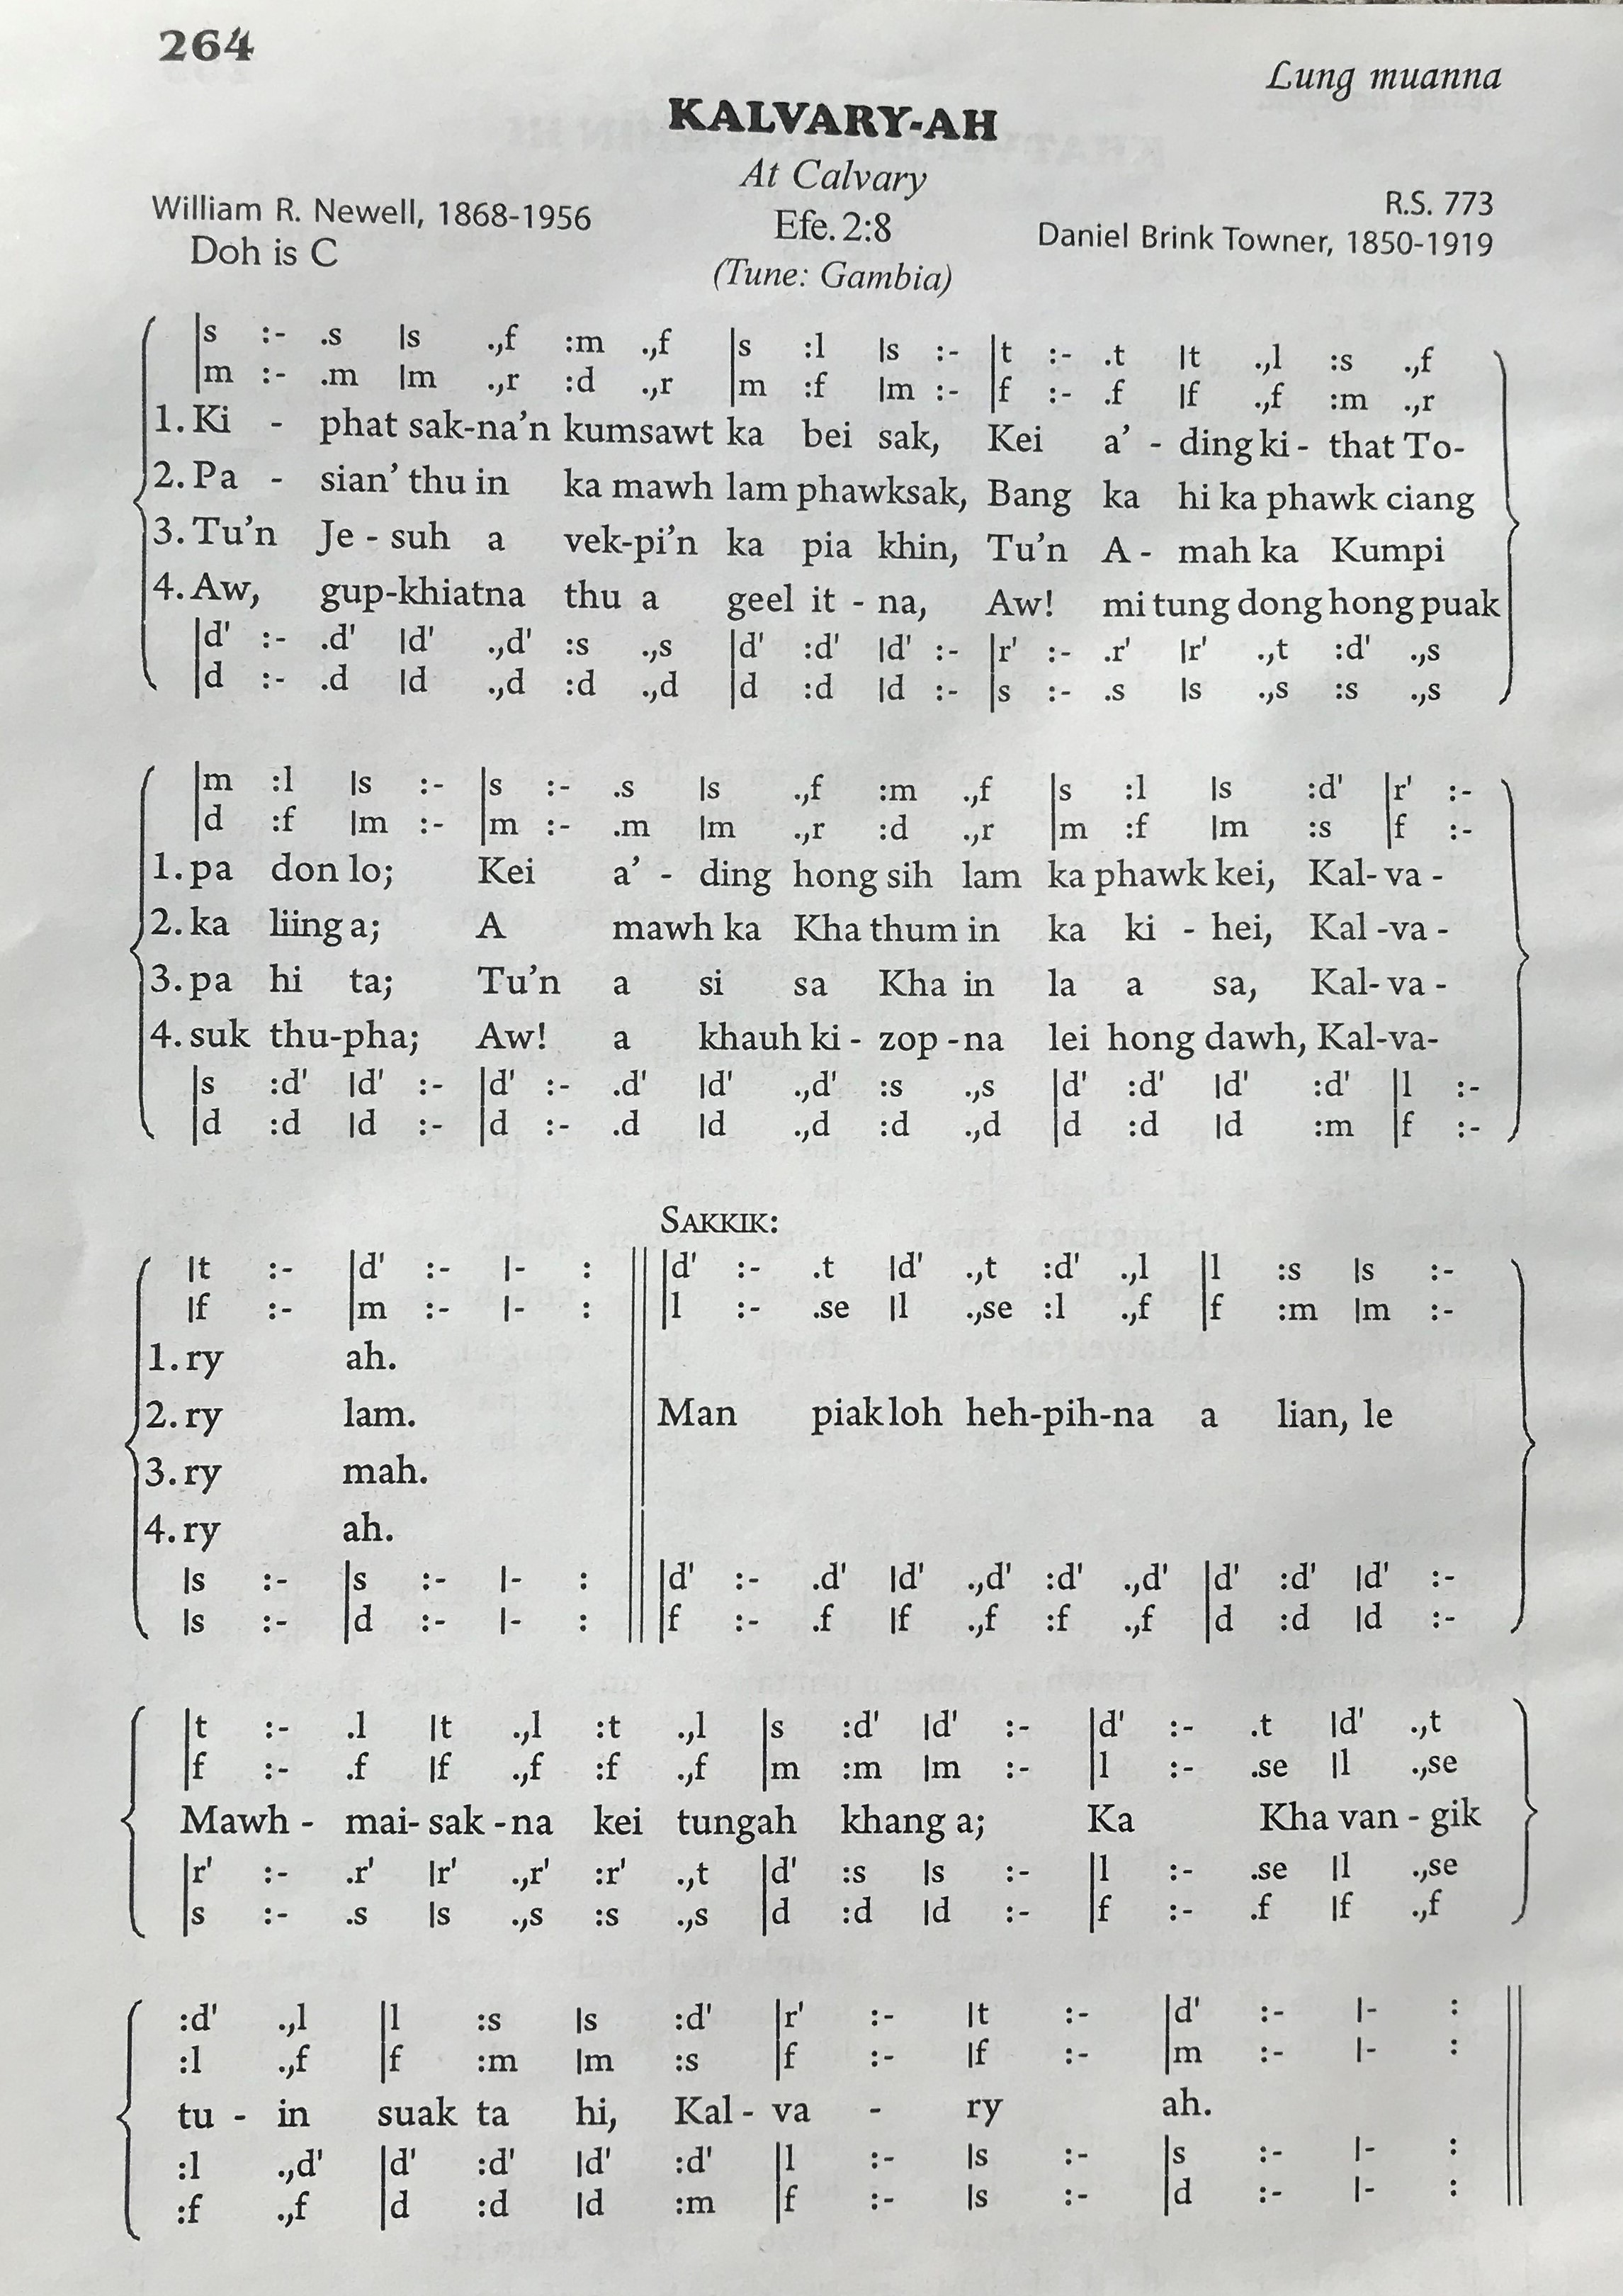 264
Lung muanna
KALVARY-AH
At Calvary
William R. Newell, 1868-1956
Efe. 2:8
R.S. 773
Doh is C
Daniel Brink Towner, 1850-1919
(Tune: Gambia)
|s :- .s |s .,f :m .,f |s :l |s :- |t :- .t |t .,l :s .,f
|m :- .m |m .,r :d .,r |m :f |m :- |f :- .f |f .,f :m .,r
1. Ki - phat sak-na’n kumsawt ka bei sak, Kei a’ - ding ki - that To-
2. Pa - sian’ thu in ka mawh lam phawksak, Bang ka hi ka phawk ciang
3. Tu’n Je - suh a vek-pi’n ka pia khin, Tu’n A - mah ka Kumpi
4. Aw, gup-khiatna thu a geel it - na, Aw! mi tung dong hong puak
|d' :- .d' |d' .,d' :s .,s |d' :d' |d' :- |r' :- .r' |r' .,t :d' .,s
|d :- .d |d .,d :d .,d |d :d |d :- |s :- .s |s .,s :s .,s
|m :l |s :- |s :- .s |s .,f :m .,f |s :l |s :d' |r' :-
|d :f |m :- |m :- .m |m .,r :d .,r |m :f |m :s |f :-
1. pa don lo; Kei a’ - ding hong sih lam ka phawk kei, Kal- va -
2. ka liing a; A mawh ka Kha thum in ka ki - hei, Kal -va -
3. pa hi ta; Tu’n a si sa Kha in la a sa, Kal- va -
4. suk thu-pha; Aw! a khauh ki - zop -na lei hong dawh, Kal-va-
|s :d' |d' :- |d' :- .d' |d' .,d' :s .,s |d' :d' |d' :d' |l :-
|d :d |d :- |d :- .d |d .,d :d .,d |d :d |d :m |f :-
SAKKIK:
|t :- |d' :- |- : |d' :- .t |d' .,t :d' .,l |l :s |s :-
|f :- |m :- |- : |l :- .se |l .,se :l .,f |f :m |m :-
1. ry ah.
2. ry lam. Man piak loh heh-pih-na a lian, le
3. ry mah.
4. ry ah.
|s :- |s :- |- : |d' :- .d' |d' .,d' :d' .,d' |d' :d' |d' :-
|s :- |d :- |- : |f :- .f |f .,f :f .,f |d :d |d :-
|t :- .l |t .,l :t .,l |s :d' |d' :- |d' :- .t |d' .,t
|f :- .f |f .,f :f .,f |m :m |m :- |l :- .se |l .,se
Mawh - mai- sak -na kei tungah khang a; Ka Kha van - gik
|r' :- .r' |r' .,r' :r' .,t |d' :s |s :- |l :- .se |l .,se
|s :- .s |s .,s :s .,s |d :d |d :- |f :- .f |f .,f
:d' .,l |l :s |s :d' |r' :- |t :- |d' :- |- :
:l .,f |f :m |m :s |f :- |f :- |m :- |- :
tu - in suak ta hi, Kal - va - ry ah.
:l .,d' |d' :d' |d' :d' |l :- |s :- |s :- |- :
:f .,f |d :d |d :m |f :- |s :- |d :- |- :